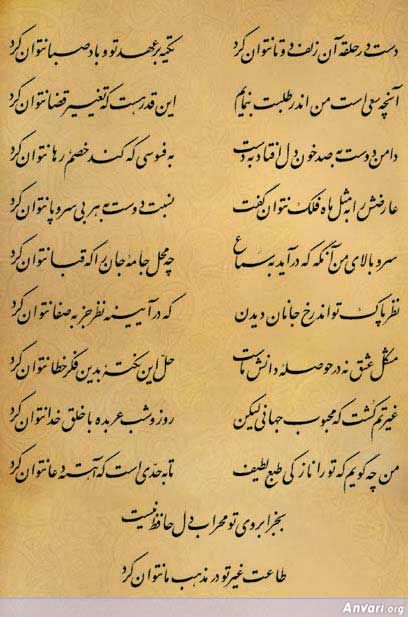 دست در حلقه آن زلف دوتا نتوان کرد تکیه بر عهد تو و باد صبا نتوان کرد
آنچه سعی است من اندر طلبت بنمایم این قدر هست که تغییر قضا نتوان کرد
دامن دوست به صد خون دل افتاد به دست به فسوسی که کند خصم رها نتوان کرد
عارضش را به مثل ماه فلک نتوان گفت نسبت دوست به هر بی سر و پا نتوان کرد
سرو بالای من آنگه که درآید به سماع چه محل جامهٔ جان را که قبا نتوان کرد
نظر پاک تواند رخ جانان دیدن که در آیینه نظر جز به صفا نتوان کرد
مشکل عشق نه در حوصلهٔ دانش ماست حل این نکته بدین فکر خطا نتوان کرد
غیرتم کشت که محبوب جهانی لیکن روز و شب عربده با خلق خدا نتوان کرد
من چه گویم که تو را نازکی طبع لطیف تا به حدی است که آهسته دعا نتوان کرد
بجز ابروی تو محراب دل حافظ نیست
طاعت غیر تو در مذهب ما نتوان کرد
Anvari.org